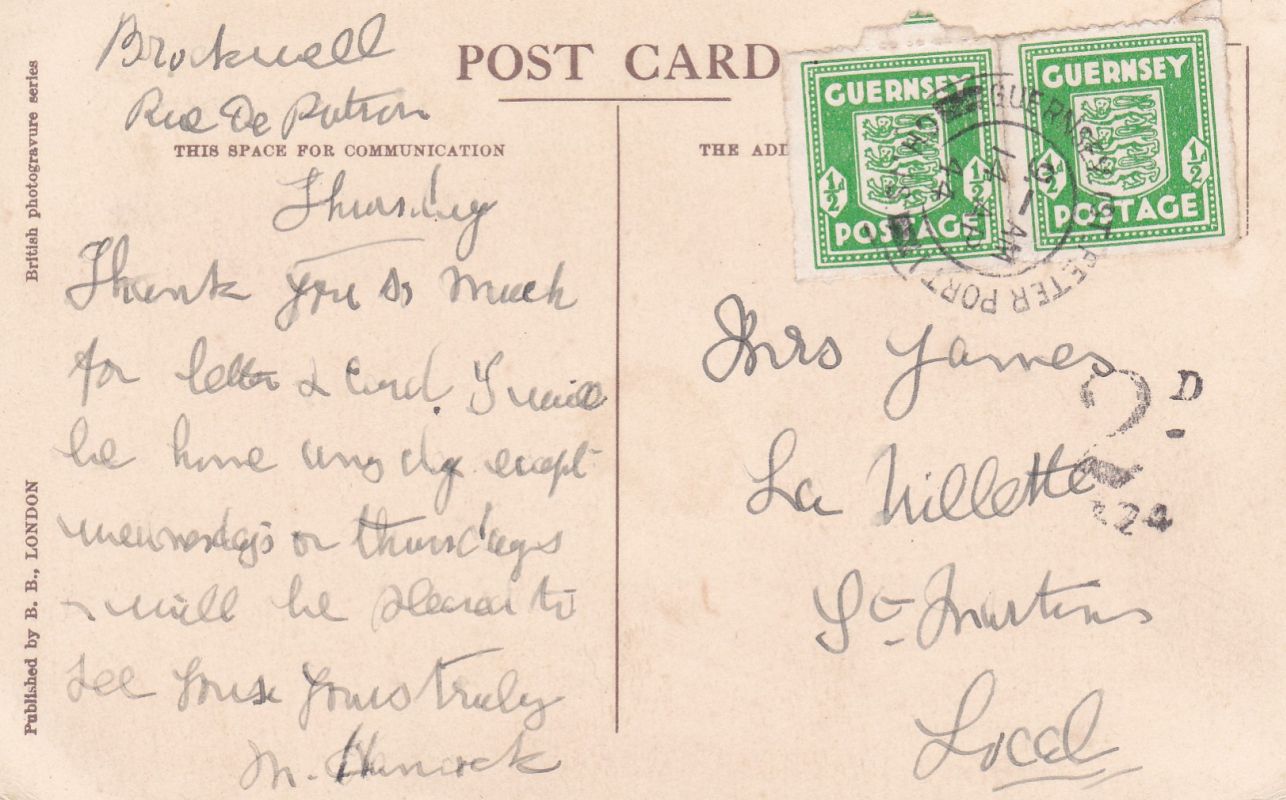 Brockwell
Rue De Putron
POST CARD
THIS SPACE FOR COMMUNICATION
THE ADD
Thursday
Thank you so much
for letter & Card. I will
be home any day except
wewnesdays or thursdays
will be pleased to
see you Yours truly
M. Hancock
British photogravure series
Published by B. B., LONDON
GUERNSEY
½ ½
POSTAGE
GUERNSEY
½ ½
POSTAGE
GUERNSEY
ST PETER PORT
AM
14 AP
44
Mrs James
La Villette
St Martins
Local
2 D
224